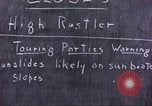 High Rustler
Touring Parties Warning
slides likely on sun
slopes